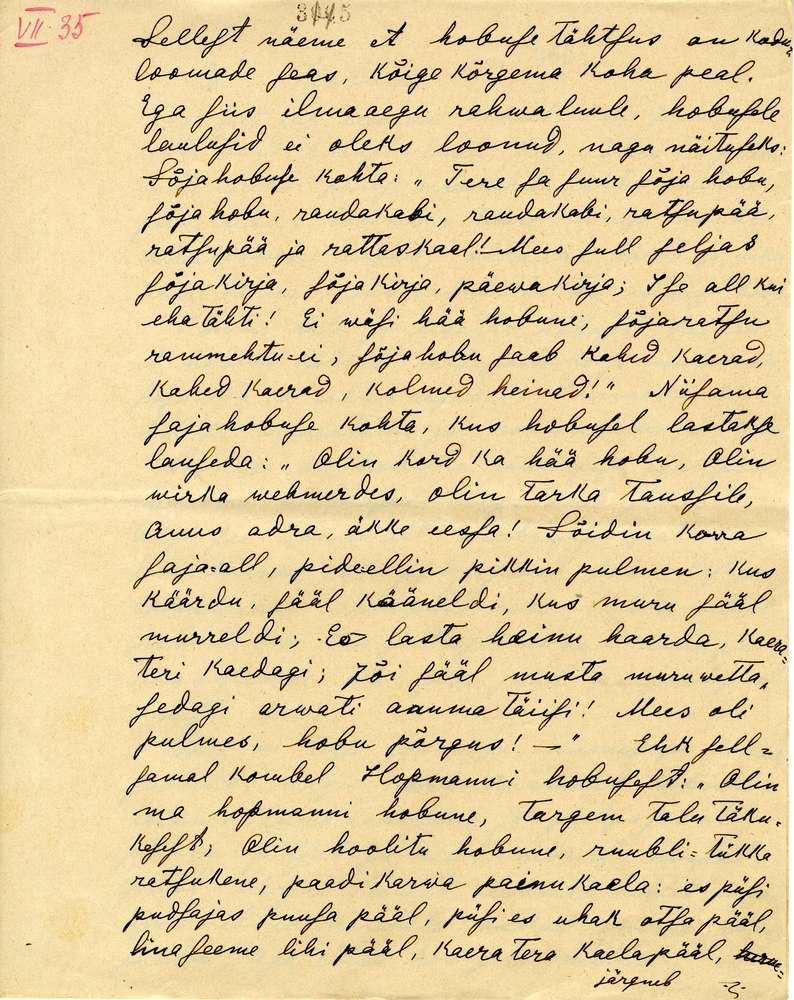 VII. 35
3445
Sellest näeme et hobuse tähtsus on kodu-
loomade seas, kõige kõrgema koha peal.
Ega siis ilmaaegu rahwaluule, hobusele
laulusid ei oleks loonud, nagu näituseks:
Sõjahobuse kohta: „Tere sa suur sõja hobu,
sõja hobu, raudakabi, raudakabi, ratsupää,
ratsupää ja rattaskaal! Mees sull seljas
sõjakirja, sõjakirja, päewakirja; Ise all kui
eha tähti! Ei wäsi hää hobune, sõjaratsu
rammehtu=ei, sõjahobu saab kahed kaerad,
kahed kaerad, kolmed heinad!“ Niisama
sajahobuse kohta, kus hobusel lastakse
lauseda: „Olin kord ka hää hobu, Olin
wirka wehmerdes, olin tarka tanssile,
auus adra, äkke eessa! Sõidin korra
saja=all, pideellin pikkin pulmen: kus
käärdu, sääl kääneldi, kus muru sääl
murreldi; Es lasta heinu haarda, kaera=
teri kaedagi; Jõi sääl musta muruwetta,
sedagi arwati aanma täiisi! Mees oli
pulmes, hobu põrgus! —“ Ehk sell=
samal kombel Hopmanni hobusest: „Olin
ma hopmanni hobune, targem talu täku-
kesest; Olin hoolitu hobune, ruubli=tükka
ratsukene, paadi karwa painukaela: es püsi
pudsajas puusa pääl, püsi es uhak otsa pääl,
lina seeme lihi pääl, kaera tera kaela pääl,
järgneb